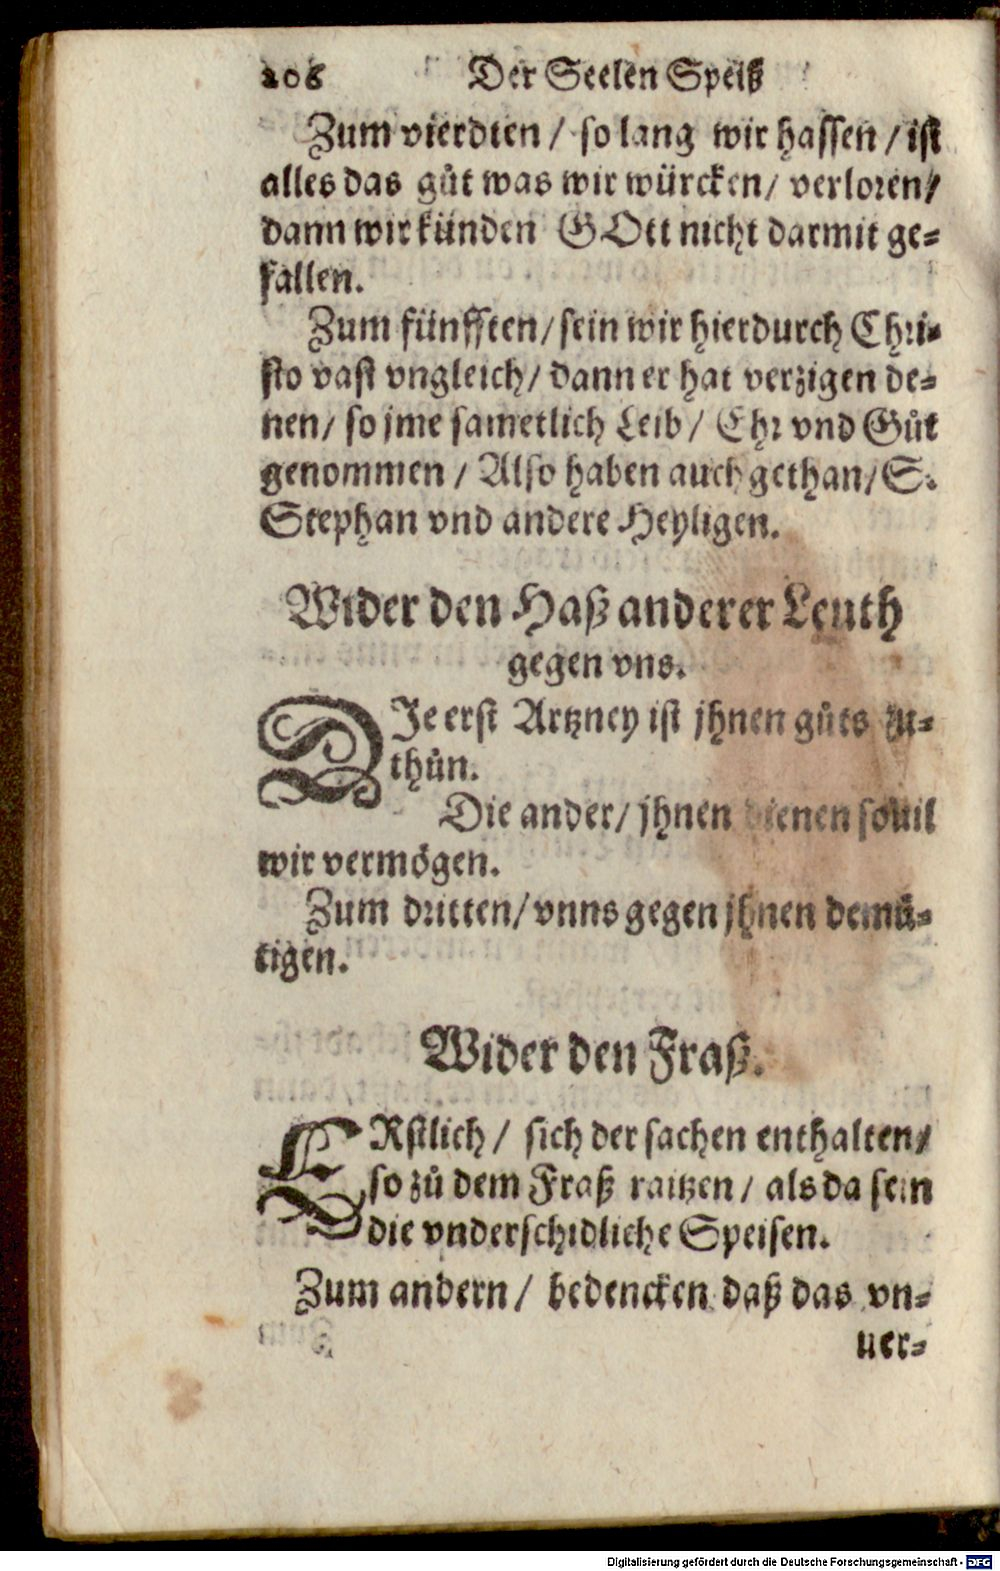 206 Der Seelen Speiß
Zum vierdten / so lang wir hassen / ist
alles das gůt was wir würcken / verloren /
dann wir künden GOtt nicht darmit ge-
fallen.
Zum fünfften / sein wir hierdurch Chri-
sto vast vngleich / dann er hat verzigen de-
nen / so jme sametlich Leib / Ehr vnd Gůt
genommen / Also haben auch gethan / S.
Stephan vnd andere Heyligen.
Wider den Haß anderer Leuth
gegen vns.
DIe erst Artzney ist jhnen gůts zu-
thůn.
Die ander / jhnen dienen souil
wir vermögen.
Zum dritten / vnns gegen jhnen demü-
tigen.
Wider den Fraß.
ERstlich / sich der sachen enthalten /
so zů dem Fraß raitzen / als da sein
die vnderschidliche Speisen.
Zum andern / bedencken daß das vn-
uer-
Digitalisierung gefördert durch die Deutsche Forschungsgemeinschaft - DFG